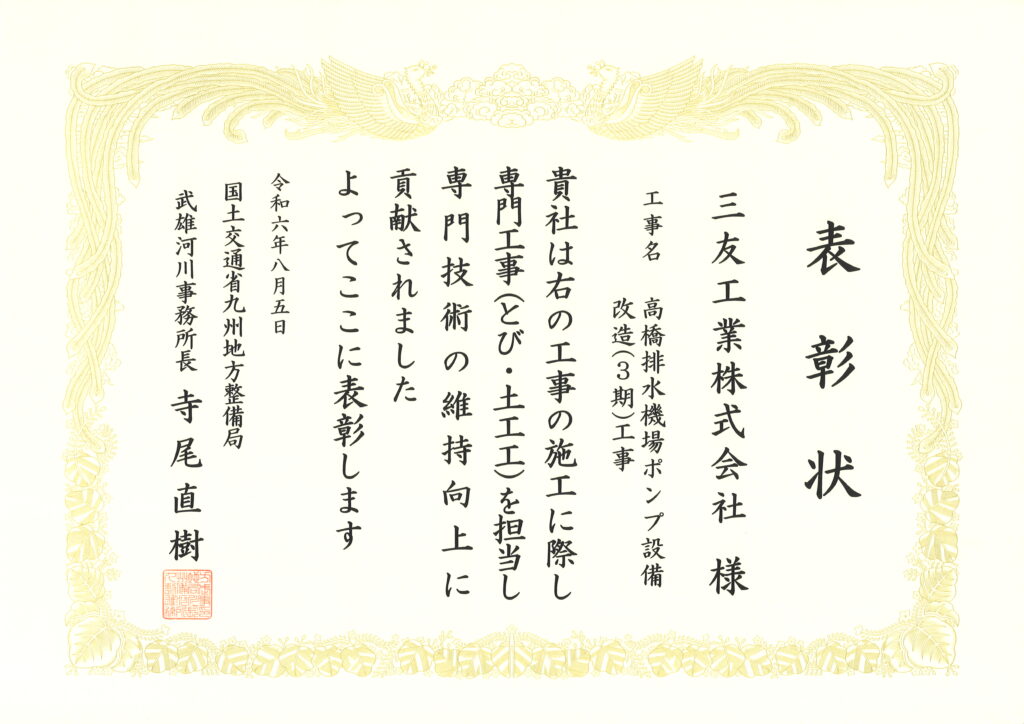 表彰状
三友工業株式会社 様
工事名 高橋排水機場ポンプ設備
改造(3期)工事
貴社は右の工事の施工に際し
専門工事(とび・土工工)を担当し
専門技術の維持向上に
貢献されました
よってここに表彰します
令和六年八月五日
国土交通省九州地方整備局
武雄河川事務所長 寺尾直樹